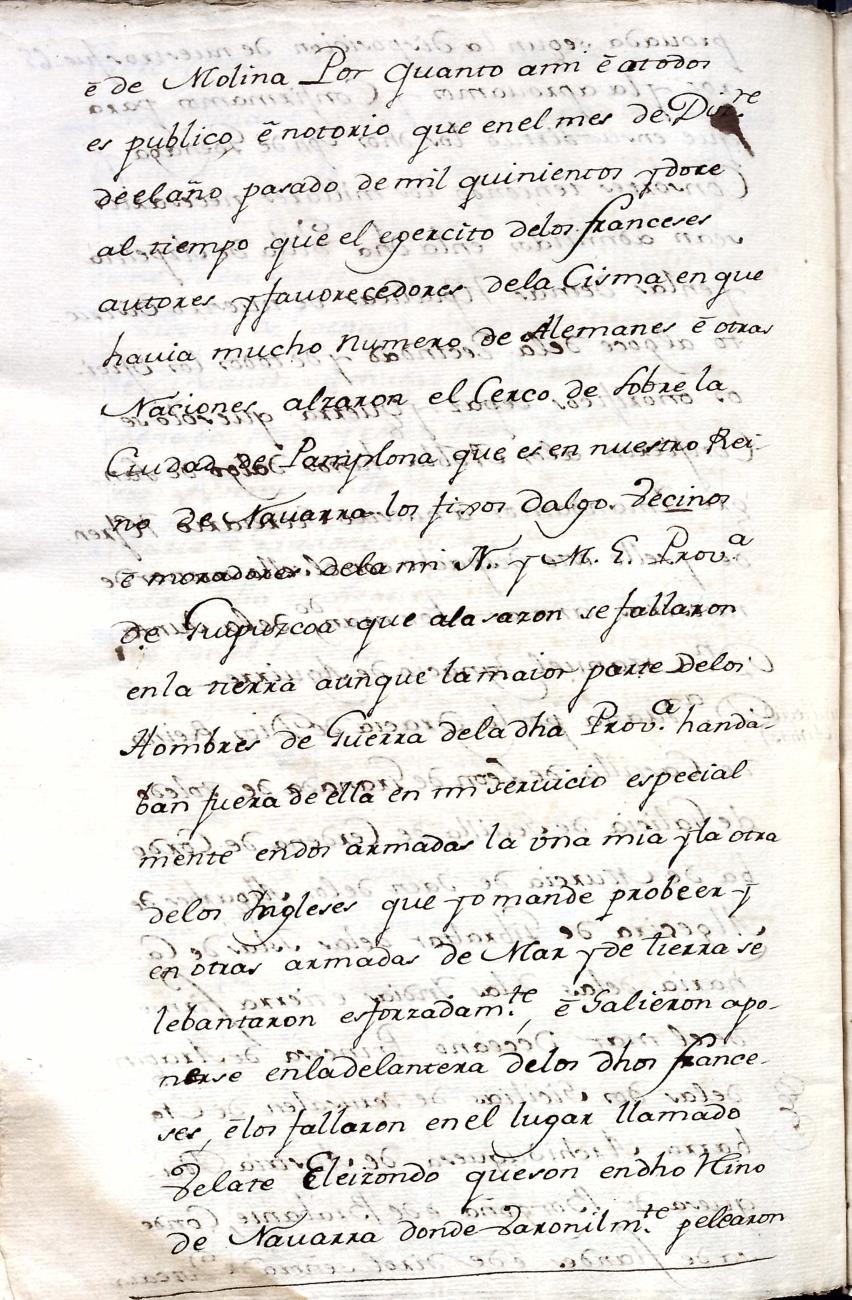 ē de Molina Por quanto ami ē atodos
es publico, ē notorio que en el mes de Dizre
de el año pasado de mil quinientos y doce
al tiempo que el egercito delos franceses
autores y favorecedores dela Cisma en que
havia mucho numero de Alemanes ē otras
Naciones alzaron el Cerco de sobre la
Ciudad de Pamplona que es en nuestro Rei-
no de Navarra los fixos dalgo. Vecinos
ē moradores dela mi N. y M. L. Prov.ª
de Guipuzcoa que ala saron se fallaron
en la tierra aunque la maior parte Delos
Hombres de Guerra dela dha Prov.ª handa-
ban fuera de ella en mi servicio especial
mente en dos armadas la una mia y la otra
delos Ingleses que yo mande probeer y
en otras armadas de Mar y de tierra se
lebantaron esforzadam.te, ē Salieron apo-
nerse enla delantera delos dhos france-
ses, e los fallaron en el lugar llamado
Velate Eleizondo que son en dho Rino
de Navarra donde Varonilm.te pelearon